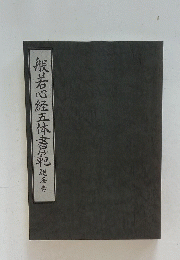 般若心経五体書範